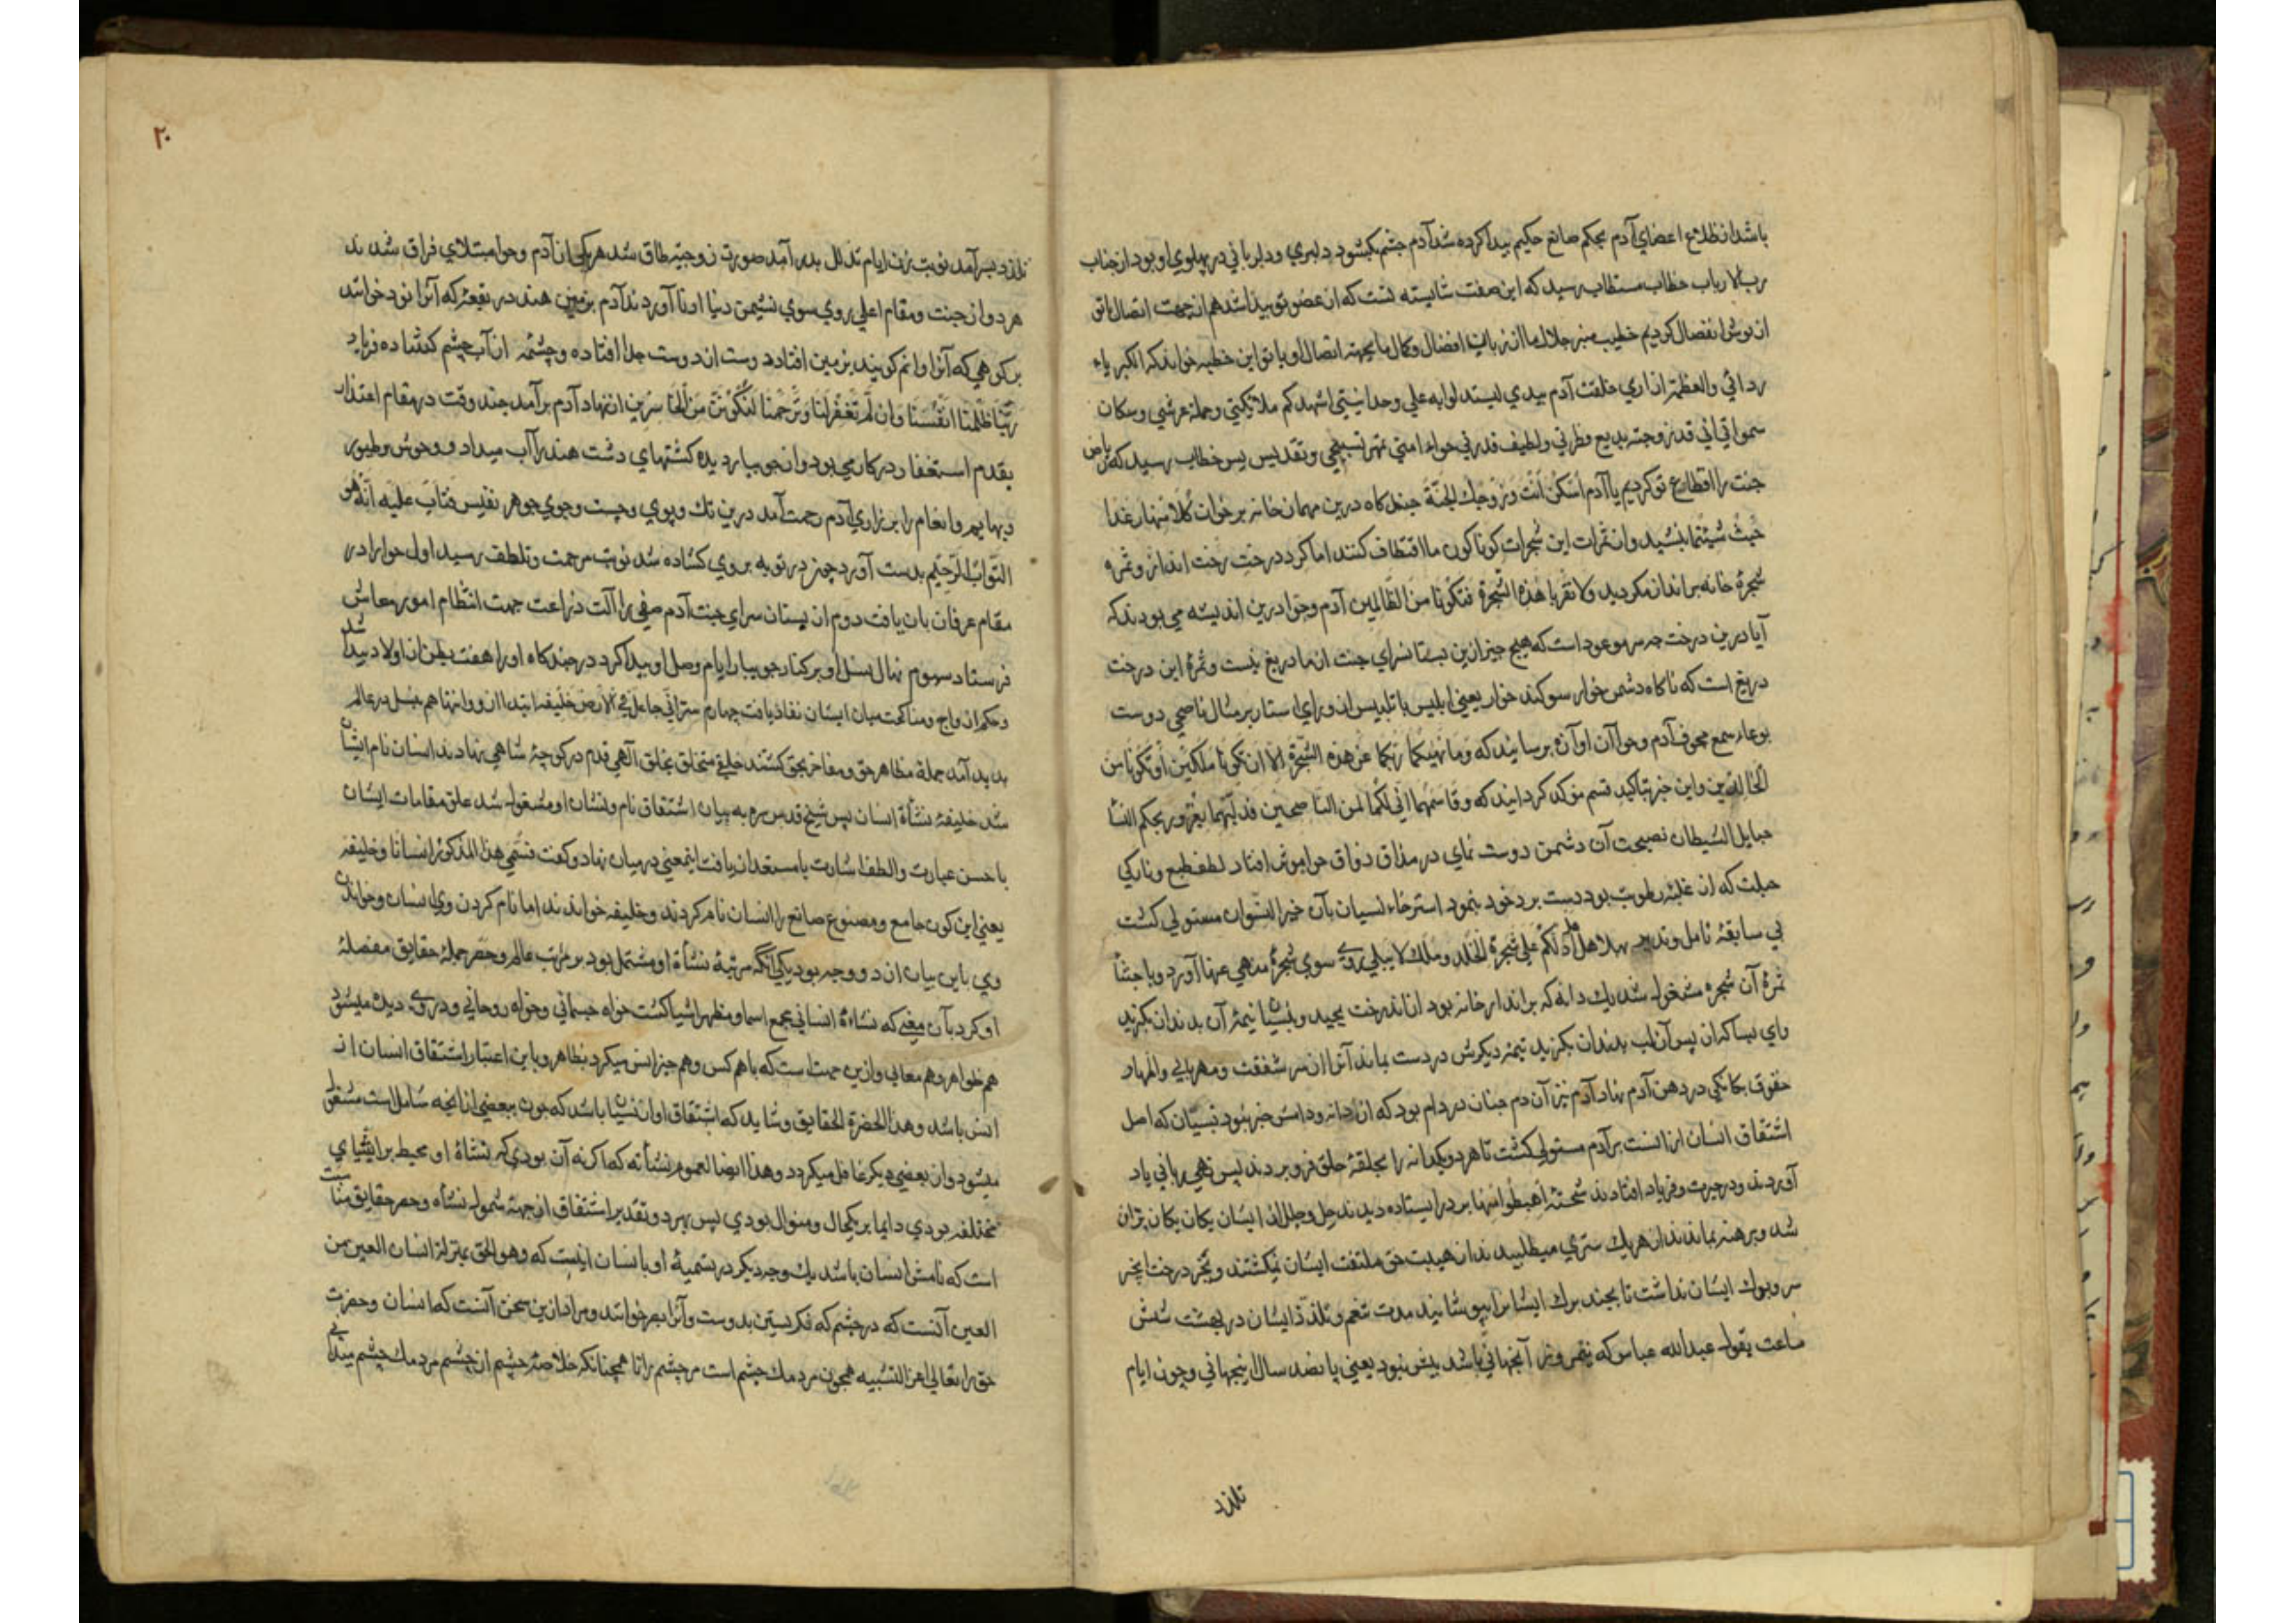 باشد از ظلاع اعضای آدم بحکم صانع حکیم پیدا کرده شد آدم چشم بکشود دلبری و دلربائی در پهلوی او بود از جناب
رب الارباب خطاب مستطاب رسید که این صفت شایسته تست که از عضو تو پیدا شد هم از جهت اتصال باتو
از توش انفصال کردیم خطیب منبر جلال ما از زبان افضال و کمال ما بجهة اتصال او با تو این خطبه خواند که الکبریاء
ردائی والعظمة ازاری خلقت آدم بیدی لیستدلوا به علی وحدانیتی اشهدکم ملائکتی وحملة عرشی وسکان
سمواتی انی قد زوجته بدیع فطرتی ولطیف قدرتی حواء امتی بمهر تسبیحی وتقدیس پس خطاب رسید که ریاض
جنت را اقطاع تو کردیم یا آدم اسکن انت وزوجک الجنة چندگاه درین مهمان خانه بر خوان کلا منها رغدا
حیث شئتما بنشینید و از ثمرات این شجرات کوناکون ما اقتطاف کنید اما کرد درخت رخت انداز و ثمره
شجرۀ خانه برانداز مکردید ولا تقربا هذه الشجرة فتکونا من الظالمین آدم وحوا درین اندیشه می بودند که
آیا درین درخت چه سر موعود است که هیچ چیز ازین بستانسرای جنت از ما دریغ نیست و ثمرۀ این درخت
دریغ است که ناکاه دشمن خوار سوکند خوار یعنی ابلیس با تلبیس از ورای استار بر مثال ناصحی دوست
بوعاء سمع مجوف آدم وحوا آن آوازه برسانید که وما نهیکما ربکما عن هذه الشجرة الا ان تکونا ملکین او تکونا من
الخالدین و این خبر بتاکید قسم مؤکد کردانید که وقاسمهما انی لکما لمن الناصحین فدلیهما بغرور بحکم النساء
حبایل الشیطان نصیحت آن دشمن دوست نمای در مذاق ذواق حوا موثر افتاد لطف طبع و نازکی
جبلت که از غلبۀ رطوبت بود دست برد خود بنمود استرخاء نسیان بآن خیر النسوان مستولی کشت
بی سابقۀ تامل و تدبیر بهلا هل ادلکم علی شجرة الخلد وملک لا یبلی روی سوی شجرۀ منهی عنها آورد و باجتناء
ثمرۀ آن شجره مشغول شد یک دانه که برانداز خانه بود از آن درخت بچید و بنسیان نیمۀ آن بدندان بکزید
وای بسا که از پس آن لب بدندان بکزید نیمۀ دیکرش در دست بماند آنرا از سر شفقت و مهربانی و اظهار
حقوق یکانکی در دهن آدم نهاد آدم نیز آن دم چنان در دام بود که از دانه و دامش خبر نبود نسیان که اصل
اشتقاق انسان ازانست بر آدم مستولی کشت تا هر دو یکدانه را بحلقۀ حلق فرو بردند پس نهی ربانی یاد
آوردند و در حیرت و فریاد افتادند شحنۀ اهبطوا منها بر در ایستاده دیدند حلی و حلل از ایشان یکان یکان پران
شد و برهنه بماندند از هر یک ستری میطلبیدند از هیبت حق ملتفت ایشان نمیکشتند و بجز درخت انجیر
سر و برک ایشان نداشت تا بچند برک ایشانرا بپوشانید مدت تنعم و تلذذ ایشان در بهشت شش
ساعت بقول عبدالله عباس که نیم روز آنجهانی باشد بیش نبود یعنی پانصد سال اینجهانی و چون ایام
تلذذ
٢٠
تلذذ بسر آمد نوبت زن ایام تذلل بدر آمد صورت زوجیت طاق شد هر یکی از آدم وحوا مبتلای فراق شدند
هر دو از جنت و مقام اعلی روی سوی نشیمن دنیا اونا آوردند آدم بزمین هند در بقعۀ که آنرا نود خوانند
بر کوهی که آنرا وانم کویند بزمین افتاد دوست از دوست جدا افتاده و چشمه از آب چشم کشاده فریاد
ربنا ظلمنا انفسنا وان لم تغفر لنا وترحمنا لنکونن من الخاسرین از نهاد آدم برآمد چند وقت در مقام اعتذار
بقدم استغفار در کار می بود و از جویبار دیده کشتهای دشت هند را آب میداد و وحوش و طیور
و بهایم و انعام را بر زاری آدم رحمت آمد درین تک و پوی و جست و جوی جوهر نفیس فتاب علیه انه هو
التواب الرحیم بدست آورد چون در توبه بروی کشاده شد نوبت مرحمت و تلطف رسید اول حوا را در
مقام عرفان باز یافت دوم از بستان سرای جنت آدم صفی را آلت زراعت جهت انتظام امور معاش
فرستاد سوم نهال نسل او بر کنار جویبار ایام وصل او پیدا کرد در چندکاه او را هفت بطن از اولاد پیدا شد
و حکم ازواج و مناکحت میان ایشان نفاذ یافت چهارم سر انی جاعل فی الارض خلیفه ابتدا از و و انتها هم بنسل در عالم
پدید آمد جملۀ مظاهر حق و مفاخر بحق کشتند خلیفۀ متخلق بخلق الهی قدم در کوچۀ شاهی نهادند انسان نام ایشان
شد خلیفه نشأة انسان پس شیخ قدس سره به بیان اشتقاق نام و نشان او مشغول شد علو مقامات ایشان
باحسن عبارت و الطف اشارت با مستعدان یافت اینمعنی در میان نهاد و کفت فسمی هذا المذکور انسانا وخلیفة
یعنی این کون جامع و مصنوع صانع را انسان نام کردند و خلیفه خواندند اما نام کردن وی انسان و خواندن
وی باین بیان از دو وجه بود یکی آنکه مرتبۀ نشأة او مشتمل بود بر مرتب عالم و حصر جملۀ حقایق مفصلۀ
او کرد بآن معنی که نشاءۀ انسانی مجمع اسما و مظهر اشیا کشت خواه جسمانی و خواه روحانی و در وی دیده میشود
هم ظواهر و هم معانی و ازین جهت است که باهم کس و هم چیز انس میکرد بظاهر و باین اعتبار اشتقاق انسان از
انس باشد وهذا لحضرة الحقایق و شاید که اشتقاق او از نسیان باشد که چون ببعضی از انچه شاملست مشغول
میشود و از بعضی دیکر غافل میکردد وهذا ایضا لعموم نشأته که اکر نه آن بودی که نشاة او محیط بر اشیای
مختلفه بودی دایما بر یکحال و منوال بودی پس بهر دو تقدیر اشتقاق از جهة شمول نشأه و حصر حقایق مناسبت
است که نامش انسان باشد یک وجه دیکر در تسمیۀ او بانسان اینست که وهو للحق بمنزلة انسان العین من
العین آنست که در چشم که نکریستن بدوست و آنرا بصر خوانند و مراد ازین سخن آنست که انسان و حضرت
حق را تعالی عن التشبیه همچون مردمک چشم است مر چشم را تا همچنانکه خلاصۀ چشم از چشم مردمک چشم میدانی